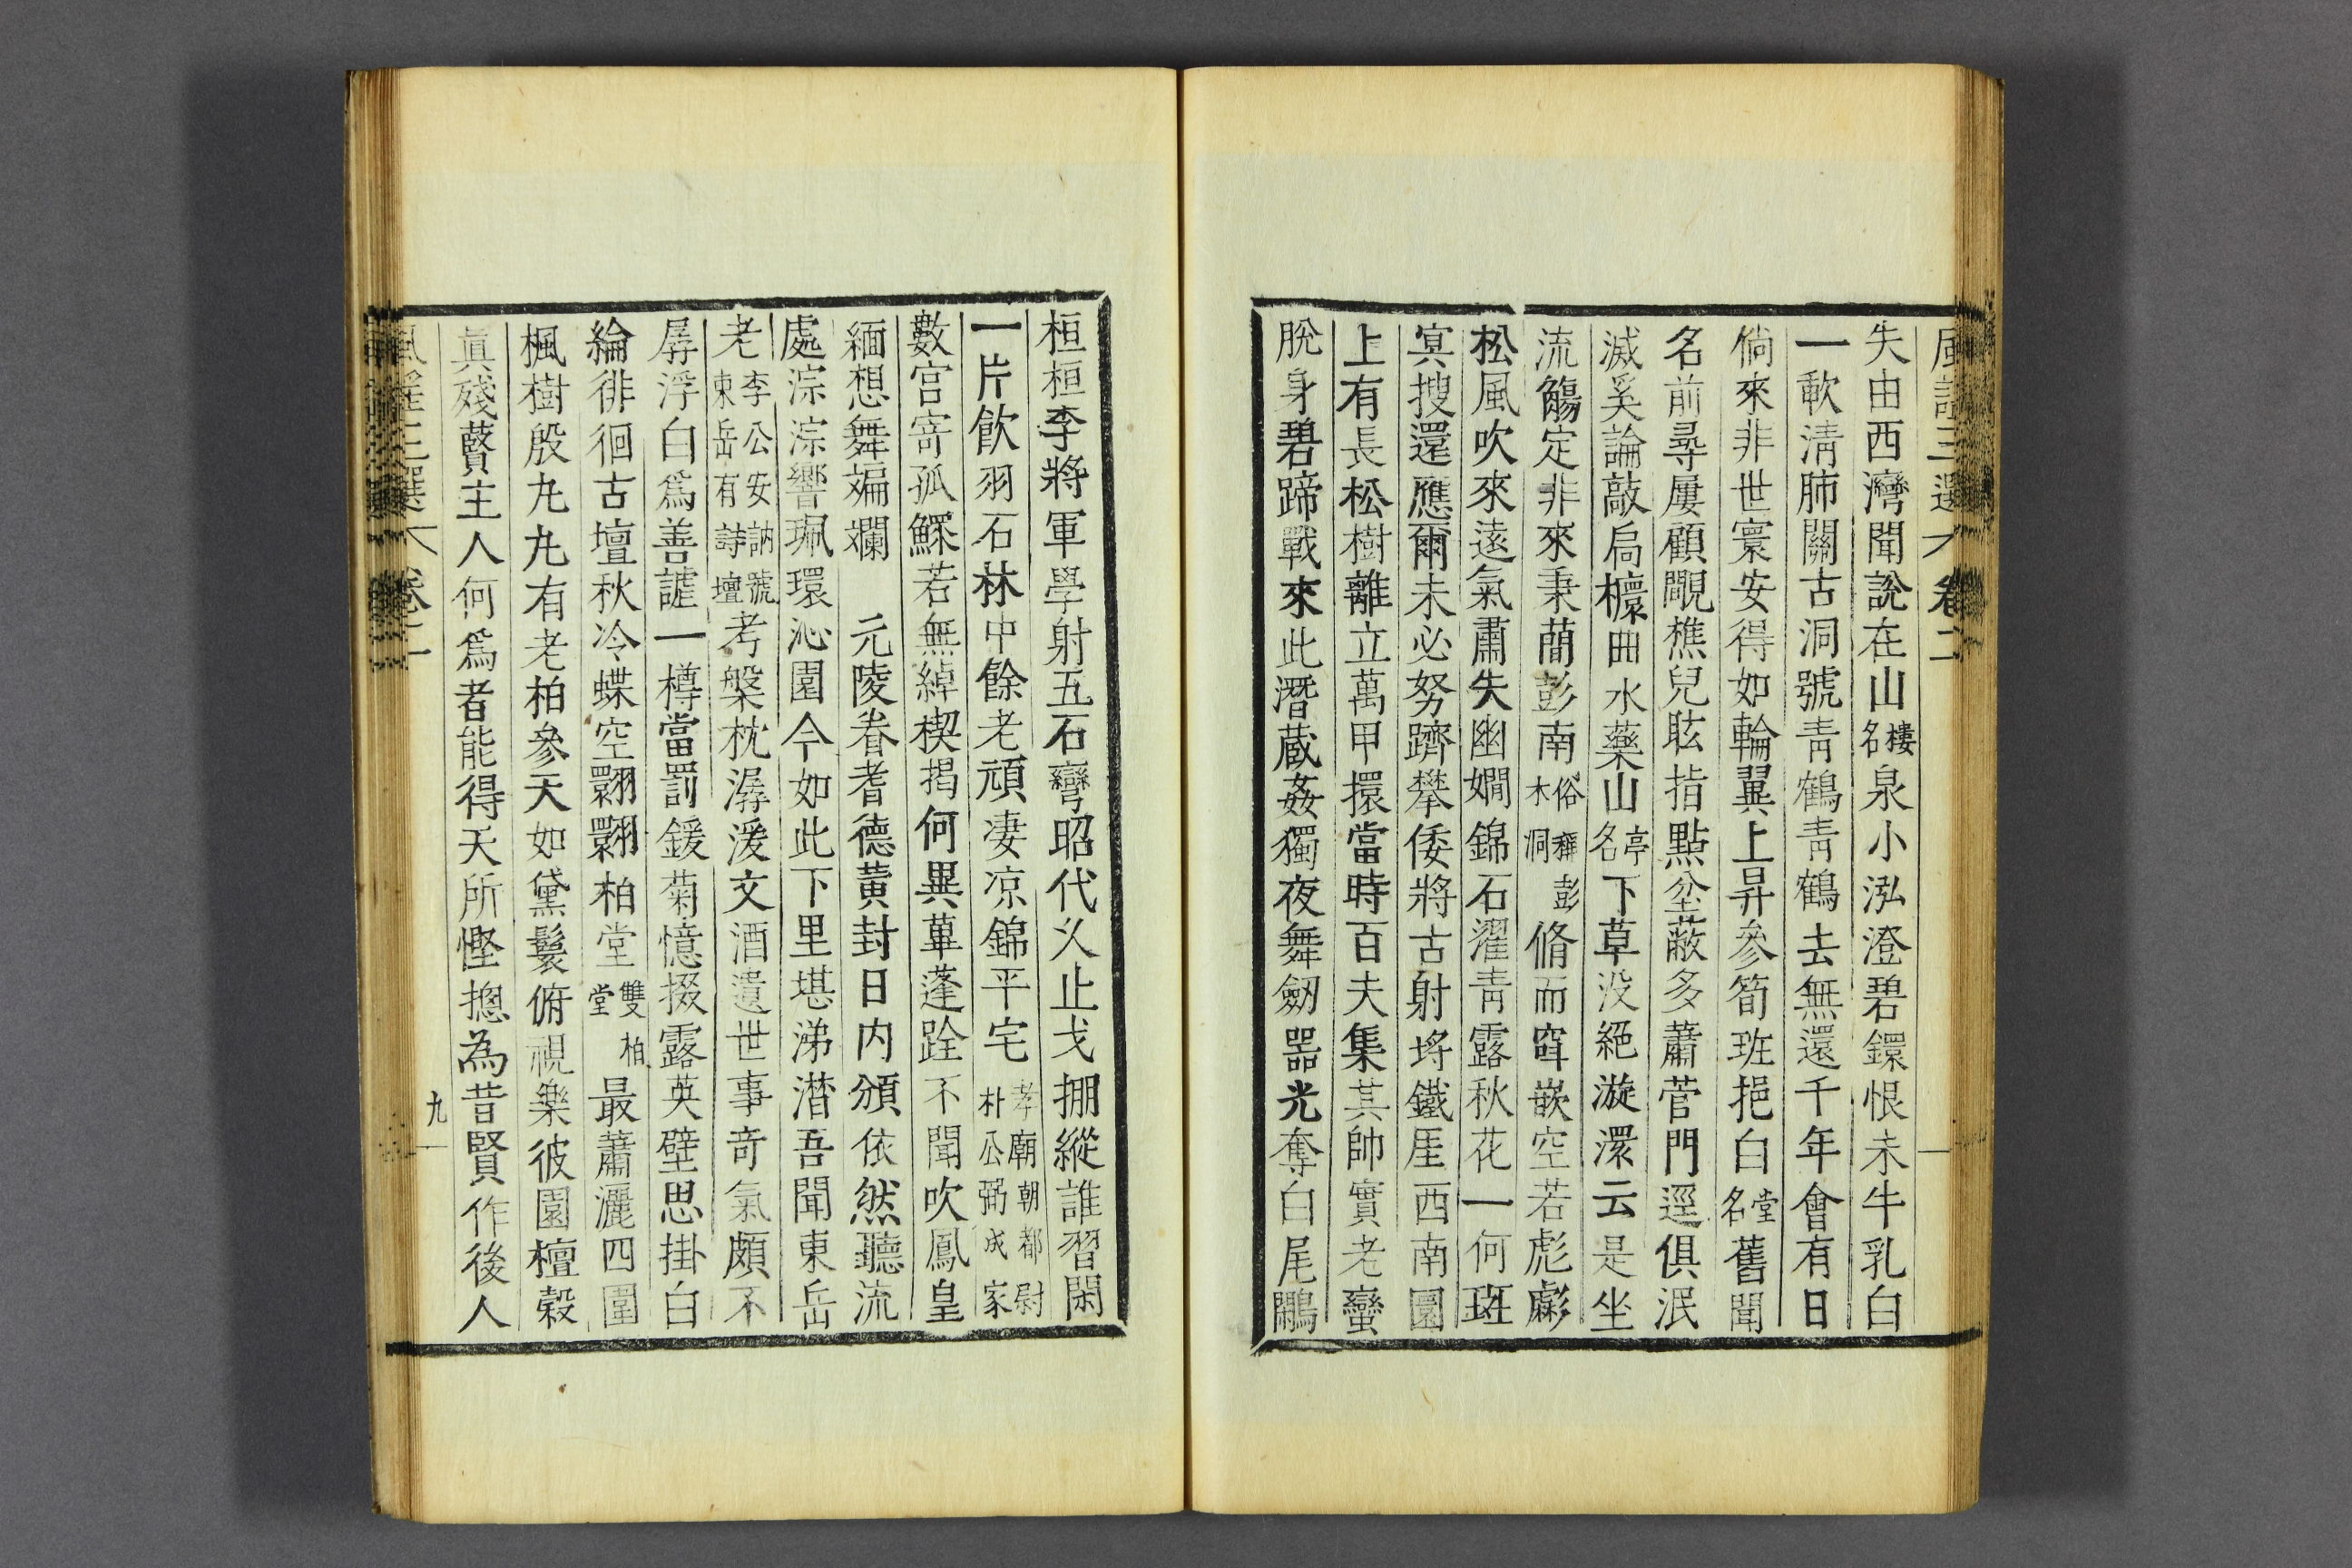 風謠三選 卷二
失由西灣聞說在山樓名泉小泓澄碧鐶恨未牛乳白
一軟淸肺關古洞號靑鶴靑鶴去無還千年會有日
倘來非世寰安得如輪翼上昇參筍班挹白堂名舊聞
名前尋屢顧覸樵兒眩指點坌蔽多蕭菅門逕俱泯
滅奚論敲扃櫰曲水藥山亭名下草沒絕漩澴云是坐
流觴定非來秉蕳彭南俗稱彭木洞脩而窪嵌空若彪虨
松風吹來遠氣肅失幽嫺錦石濯靑露秋花一何斑
冥搜還應爾未必努躋攀倭將古射埓鐵厓西南園
上有長松樹離立萬甲擐當時百夫集其帥實老蠻
脫身碧蹄戰來此潛蔵姦獨夜舞劒噐光奪白尾鷴
桓桓李將軍學射五石彎昭代乆止戈掤縱誰習閑
一片飮羽石林中餘老頑凄凉錦平宅孝廟朝都尉朴公弼成家
數宮寄孤鰥若無綽楔揭何異蓽蓬跧不聞吹鳳皇
緬想舞斒斕 元陵眷耆德黃封日內頒依然聽流
處淙淙響珮環沁園今如此下里堪涕潸吾聞東岳
老李公安訥號東岳有詩壇考槃枕潺湲文酒遺世事奇氣頗不
孱浮白爲善謔一樽當罰鍰菊憶掇露英壁思掛白
綸徘徊古壇秋冷蝶空翾翾柏堂雙柏堂最蕭灑四圍
楓樹殷九九有老柏參天如黛鬟俯視樂彼園檀榖
眞殘蘷主人何爲者能得天所慳摠為昔賢作後人
風謠三選 卷二
九